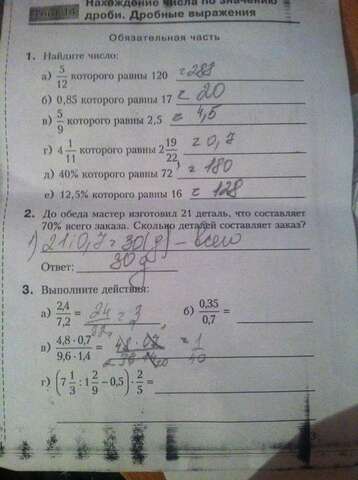 Тест 14. Нахождение числа по значению
дроби. Дробные выражения
Обязательная часть
1. Найдите число:
а) 5/12 которого равны 120 = 288
б) 0,85 которого равны 17 = 20
в) 5/9 которого равны 2,5 = 4,5
г) 4 1/11 которого равны 2 19/22 = 0,7
д) 40% которого равны 72 = 180
е) 12,5% которого равны 16 = 128
2. До обеда мастер изготовил 21 деталь, что составляет
70% всего заказа. Сколько деталей составляет заказ?
1) 21:0,7=30(д) - всего
Ответ: 30 д
3. Выполните действия:
а) 2,4/7,2 = б) 0,35/0,7 =
в) 4,8 · 0,7/9,6 · 1,4 = = 1/40
г) (7 1/3 : 1 2/9 - 0,5) · 2/5 =